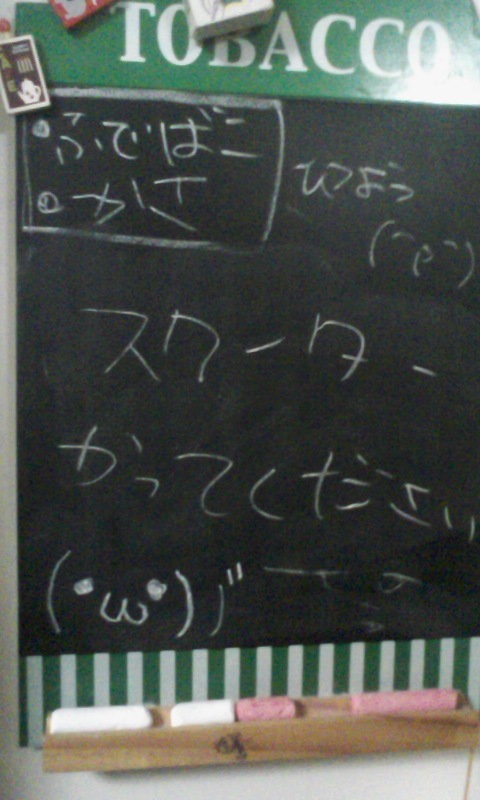 TOBACCO
・ふでばこ
・かさ
ひつよう
スクーター
かってください
(・ω・)